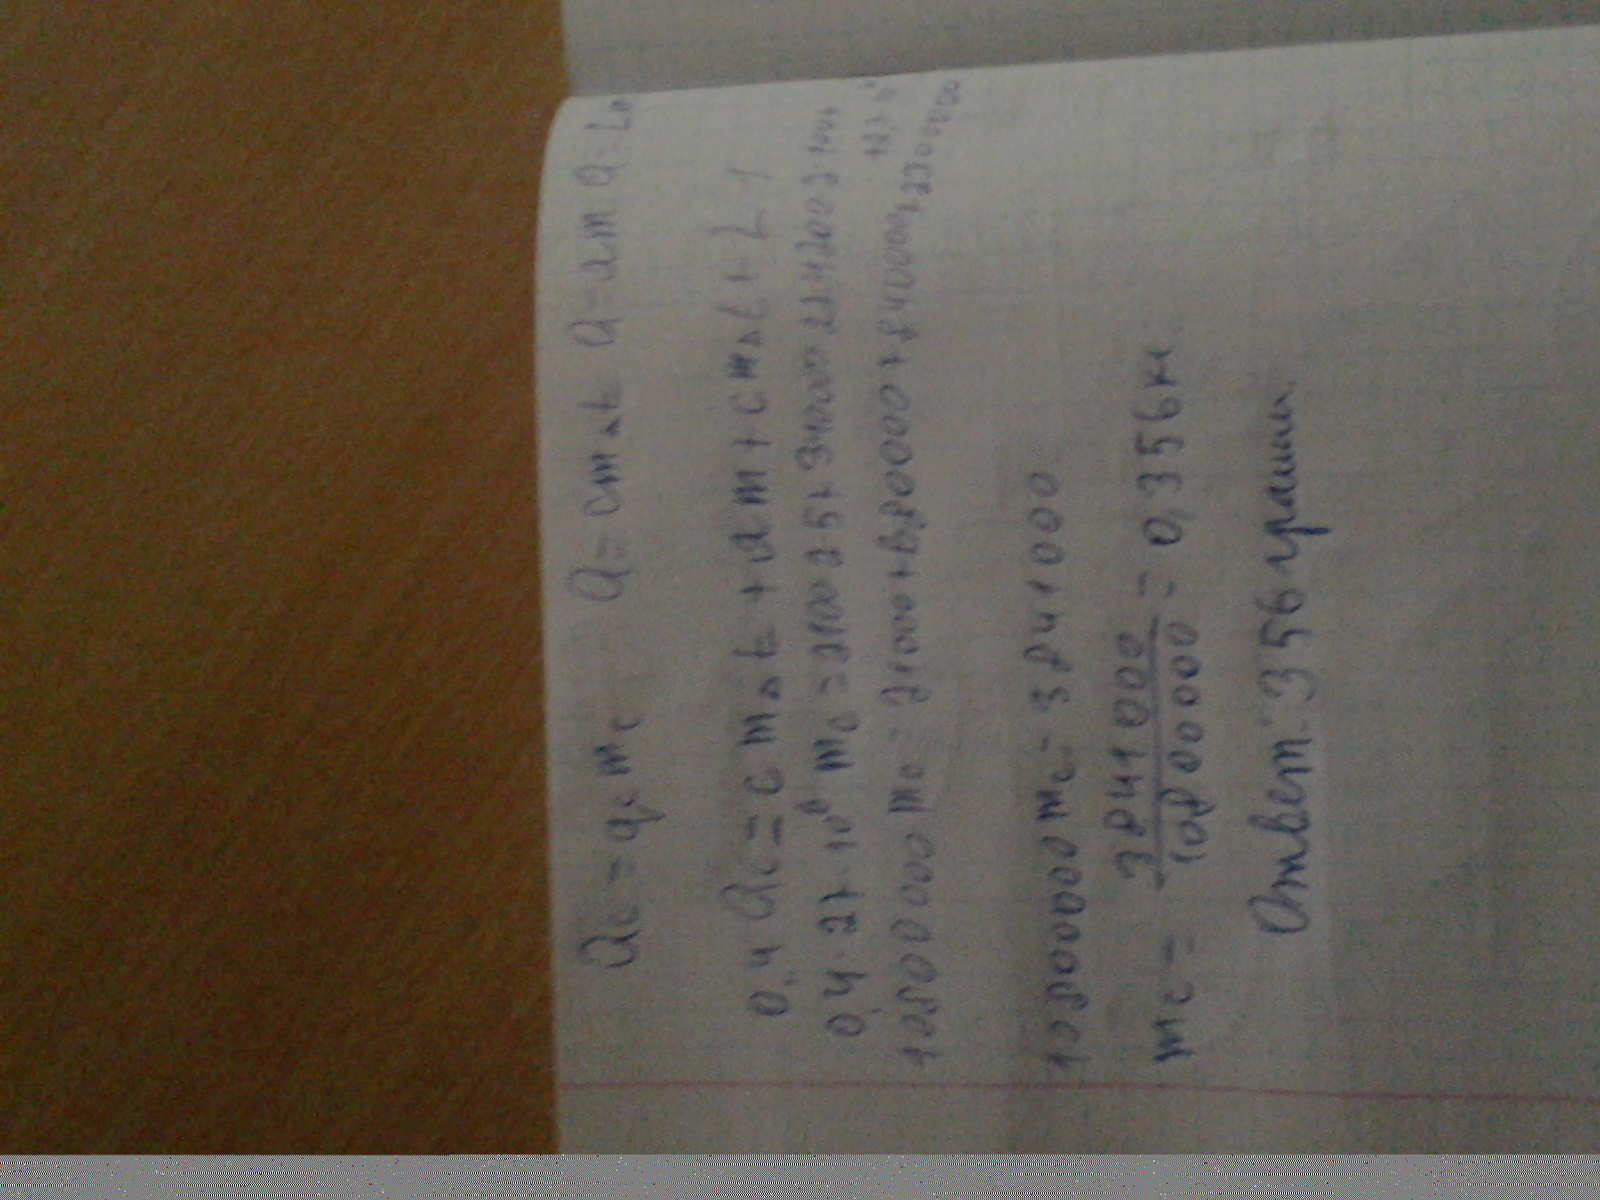 Qc = qc mc Q = cmΔt Q = λm Q = Lm
0,4 Qc = c mΔt + λm + cmΔt + L
0,4 · 27 · 10⁶ mc = 2100 2 5 + 340000 2 + 4200 2 100 +
10800000 mc = 21000 + 680000 + 840000 +
10800000 mc = 3841000
mc = 3841000 / 10800000 = 0,356 кг
Ответ: 356 грамм